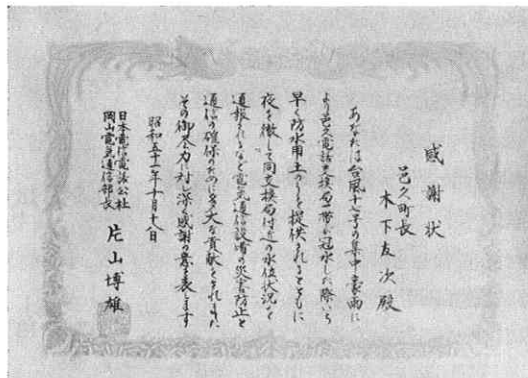 感謝状
邑久町長
木下友次殿
あなたは台風十七号の集中豪雨に
より邑久電話交換局一帯が冠水した際いち
早く防水用土のうを提供されるとともに
夜を徹して同交換局付近の水位状況を
通報されるなど電気通信設備の災害防止と
通信の確保のために多大な貢献をされました
その御尽力に対し深く感謝の意を表します
昭和五十一年十月十八日
日本電信電話公社
岡山電気通信部長
片山博雄